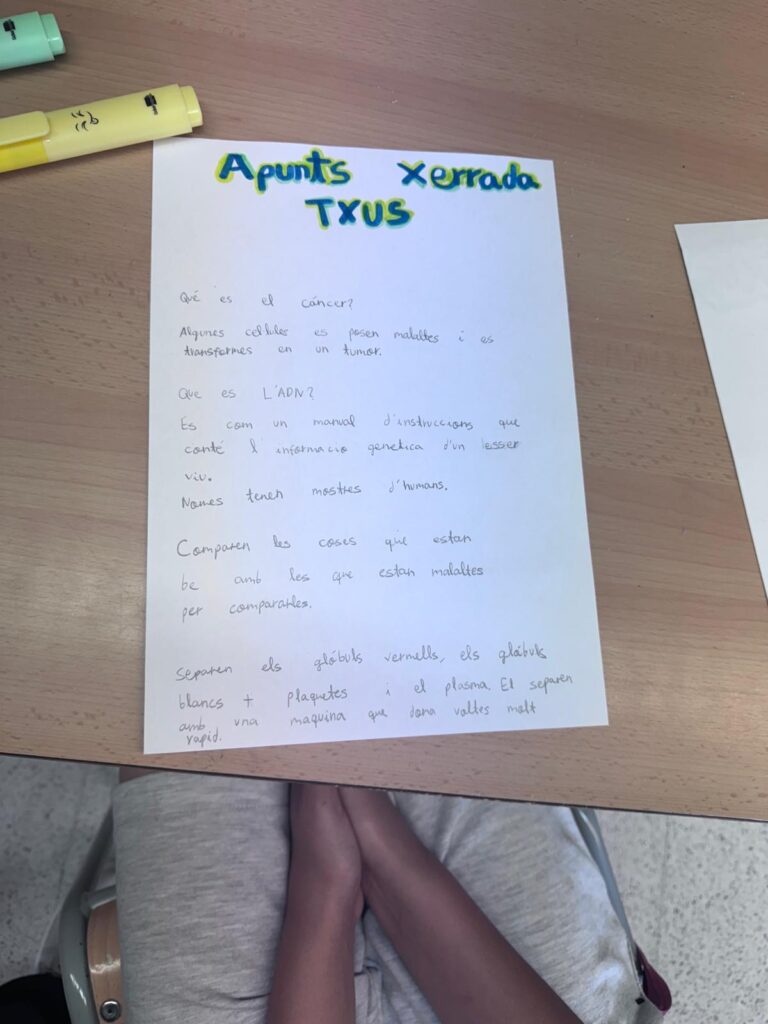 Apunts Xerrada
TXUS
Qué es el cáncer?
Algunes cèl·lules es posen malaltes i es
transformes en un tumor.
Que es L'ADN?
Es com un manual d'instruccions que
conté l'informacio genetica d'un esser
viu.
Nomes tenen mostres d'humans.
Comparen les coses que estan
be amb les que estan malaltes
per comparar-les.
Separen els glóbuls vermells, els glóbuls
blancs + plaquetes i el plasma. El separen
amb una maquina que dona voltes molt
rapid.